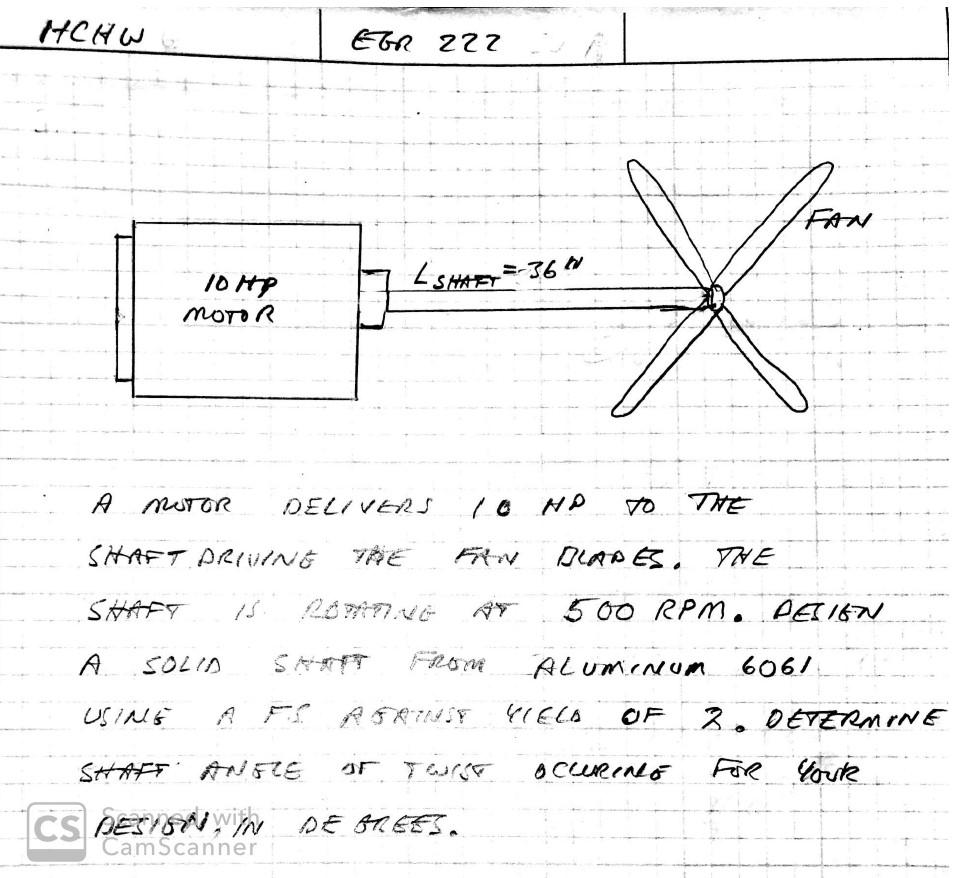 HCHW
EGR 222
FAN
L SHAFT = 36 IN
10 HP
MOTOR
A MOTOR DELIVERS 10 HP TO THE
SHAFT DRIVING THE FAN BLADES. THE
SHAFT IS ROTATING AT 500 RPM. DESIGN
A SOLID SHAFT FROM ALUMINUM 6061
USING A FS AGAINST YIELD OF 2. DETERMINE
SHAFT ANGLE OF TWIST OCCURING FOR YOUR
DESIGN, IN DEGREES.
CS Scanned with
CamScanner